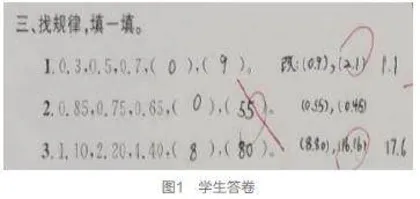 三、找规律,填一填。
1. 0.3,0.5,0.7,( 0 ),( 9 )。 改:(0.9),(2.1) 1.1
2. 0.85,0.75,0.65,( 0 ),( 55 )。 (0.55),(0.45)
3. 1.10,2.20,4.40,( 8 ),( 80 )。 (8.80),(16.16) 17.6
图1 学生答卷